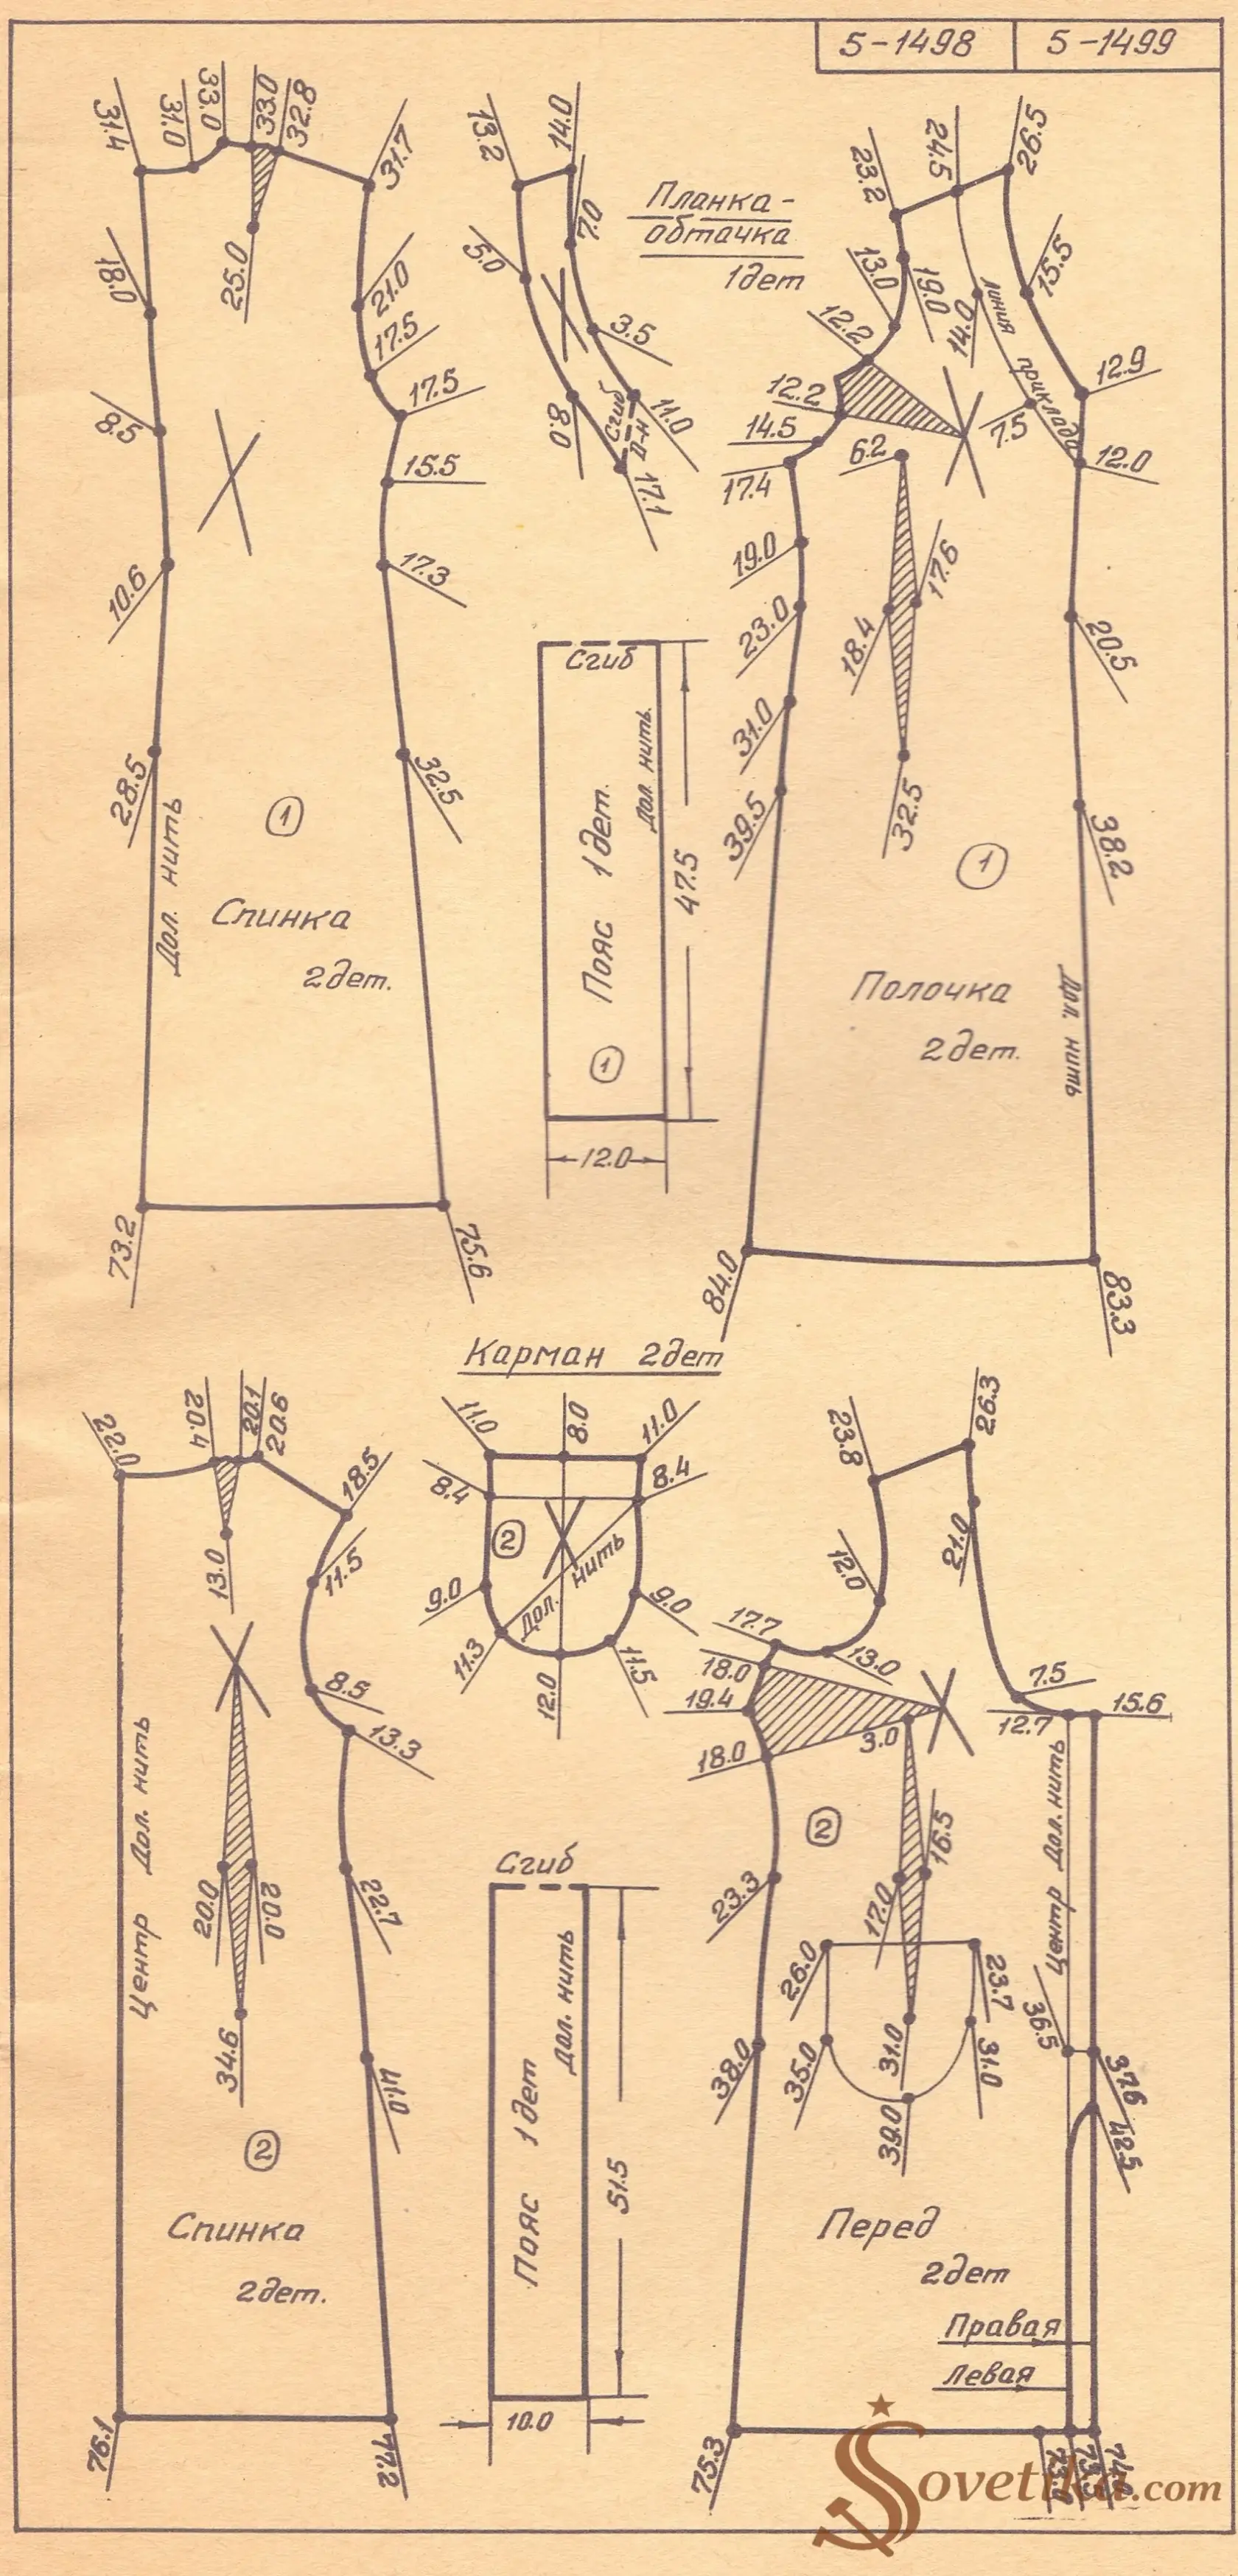 5-1498
5-1499
31.4
31.0
33.0
33.0
32.8
31.7
25.0
18.0
21.0
17.5
17.5
8.5
15.5
10.6
17.3
28.5
32.5
Дол. нить
1
Спинка
2дет.
73.2
75.6
13.2
14.0
Планка-
обтачка
1дет
7.0
5.0
3.5
8.0
Сгиб
Д-Н
11.0
17.1
Сгиб
Дол. нить.
Пояс 1дет.
1
47.5
12.0
23.2
24.5
26.5
13.0
19.0
14.0
15.5
линия
приклада
12.2
12.2
12.9
14.5
7.5
6.2
12.0
17.4
19.0
17.6
23.0
18.4
20.5
31.0
39.5
32.5
38.2
1
Полочка
2дет.
Дол. нить
84.0
83.3
Карман 2дет
22.0
20.4
20.1
20.6
18.5
13.0
11.5
8.5
13.3
Центр Дол. нить
20.0
20.0
22.7
34.6
41.0
2
Спинка
2дет.
76.1
77.2
11.0
8.0
11.0
8.4
8.4
2
Дол. нить
9.0
9.0
11.3
12.0
11.5
Сгиб
Дол. нить
Пояс 1дет
51.5
10.0
23.8
26.3
12.0
21.0
17.7
13.0
18.0
7.5
19.4
12.7
15.6
18.0
3.0
2
16.5
23.3
17.0
Центр Дол. нить
26.0
23.7
36.5
38.0
35.0
31.0
31.0
37.6
39.0
42.5
Перед
2дет
Правая
Левая
75.3
Sovetika.com